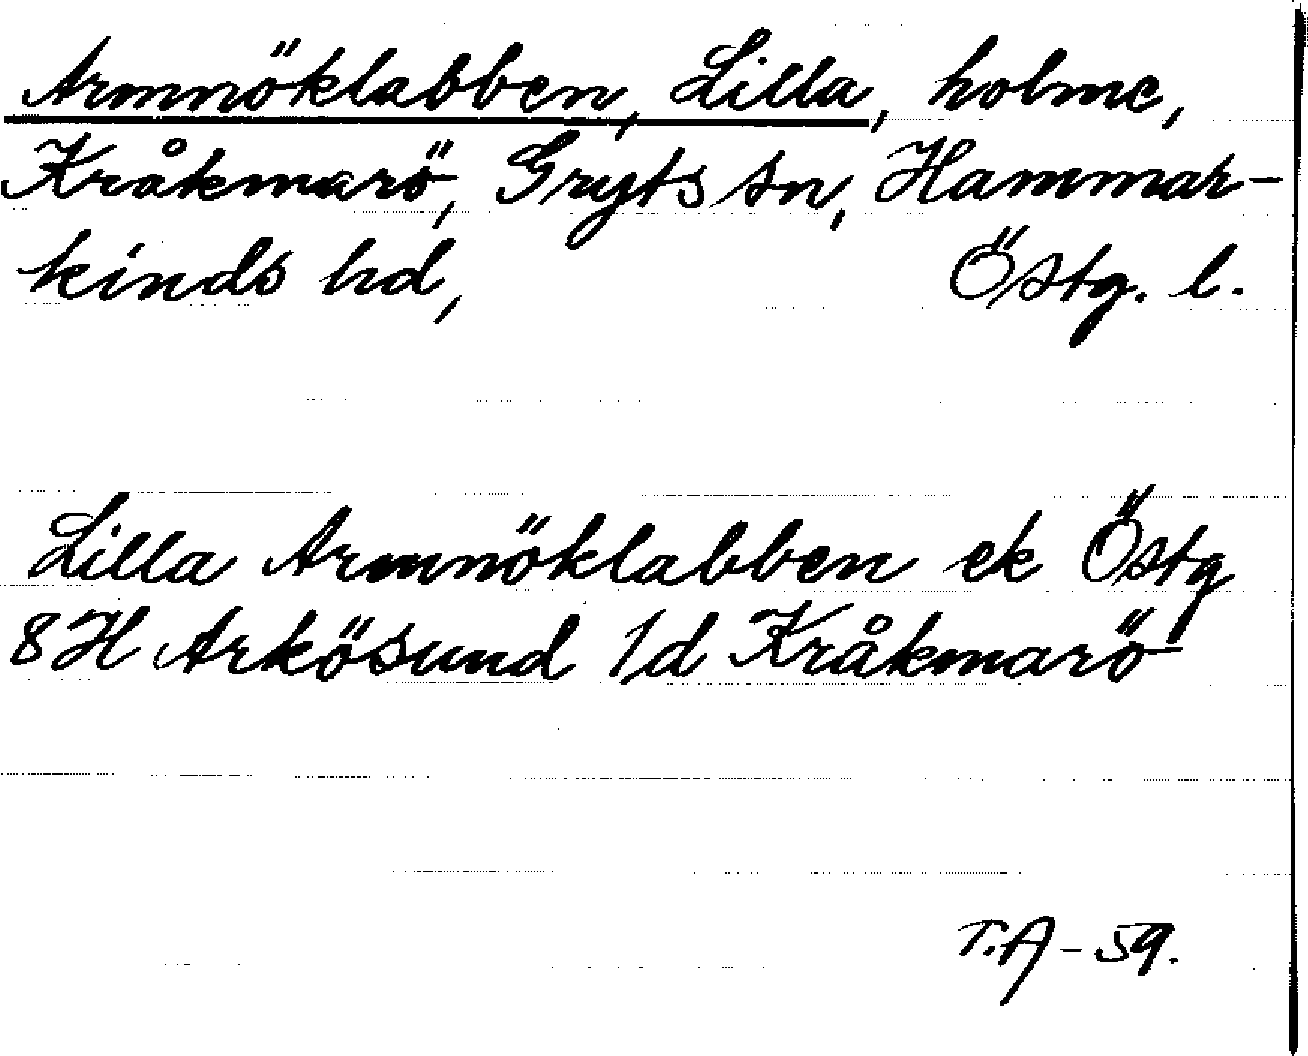 Armnöklabben, Lilla, holme,
Kråkmarö, Gryts sn, Hammar-
kinds hd, Östg. l.
Lilla Armnöklabben ek Östg
8H Arkösund 1d Kråkmarö
T.A - 59.